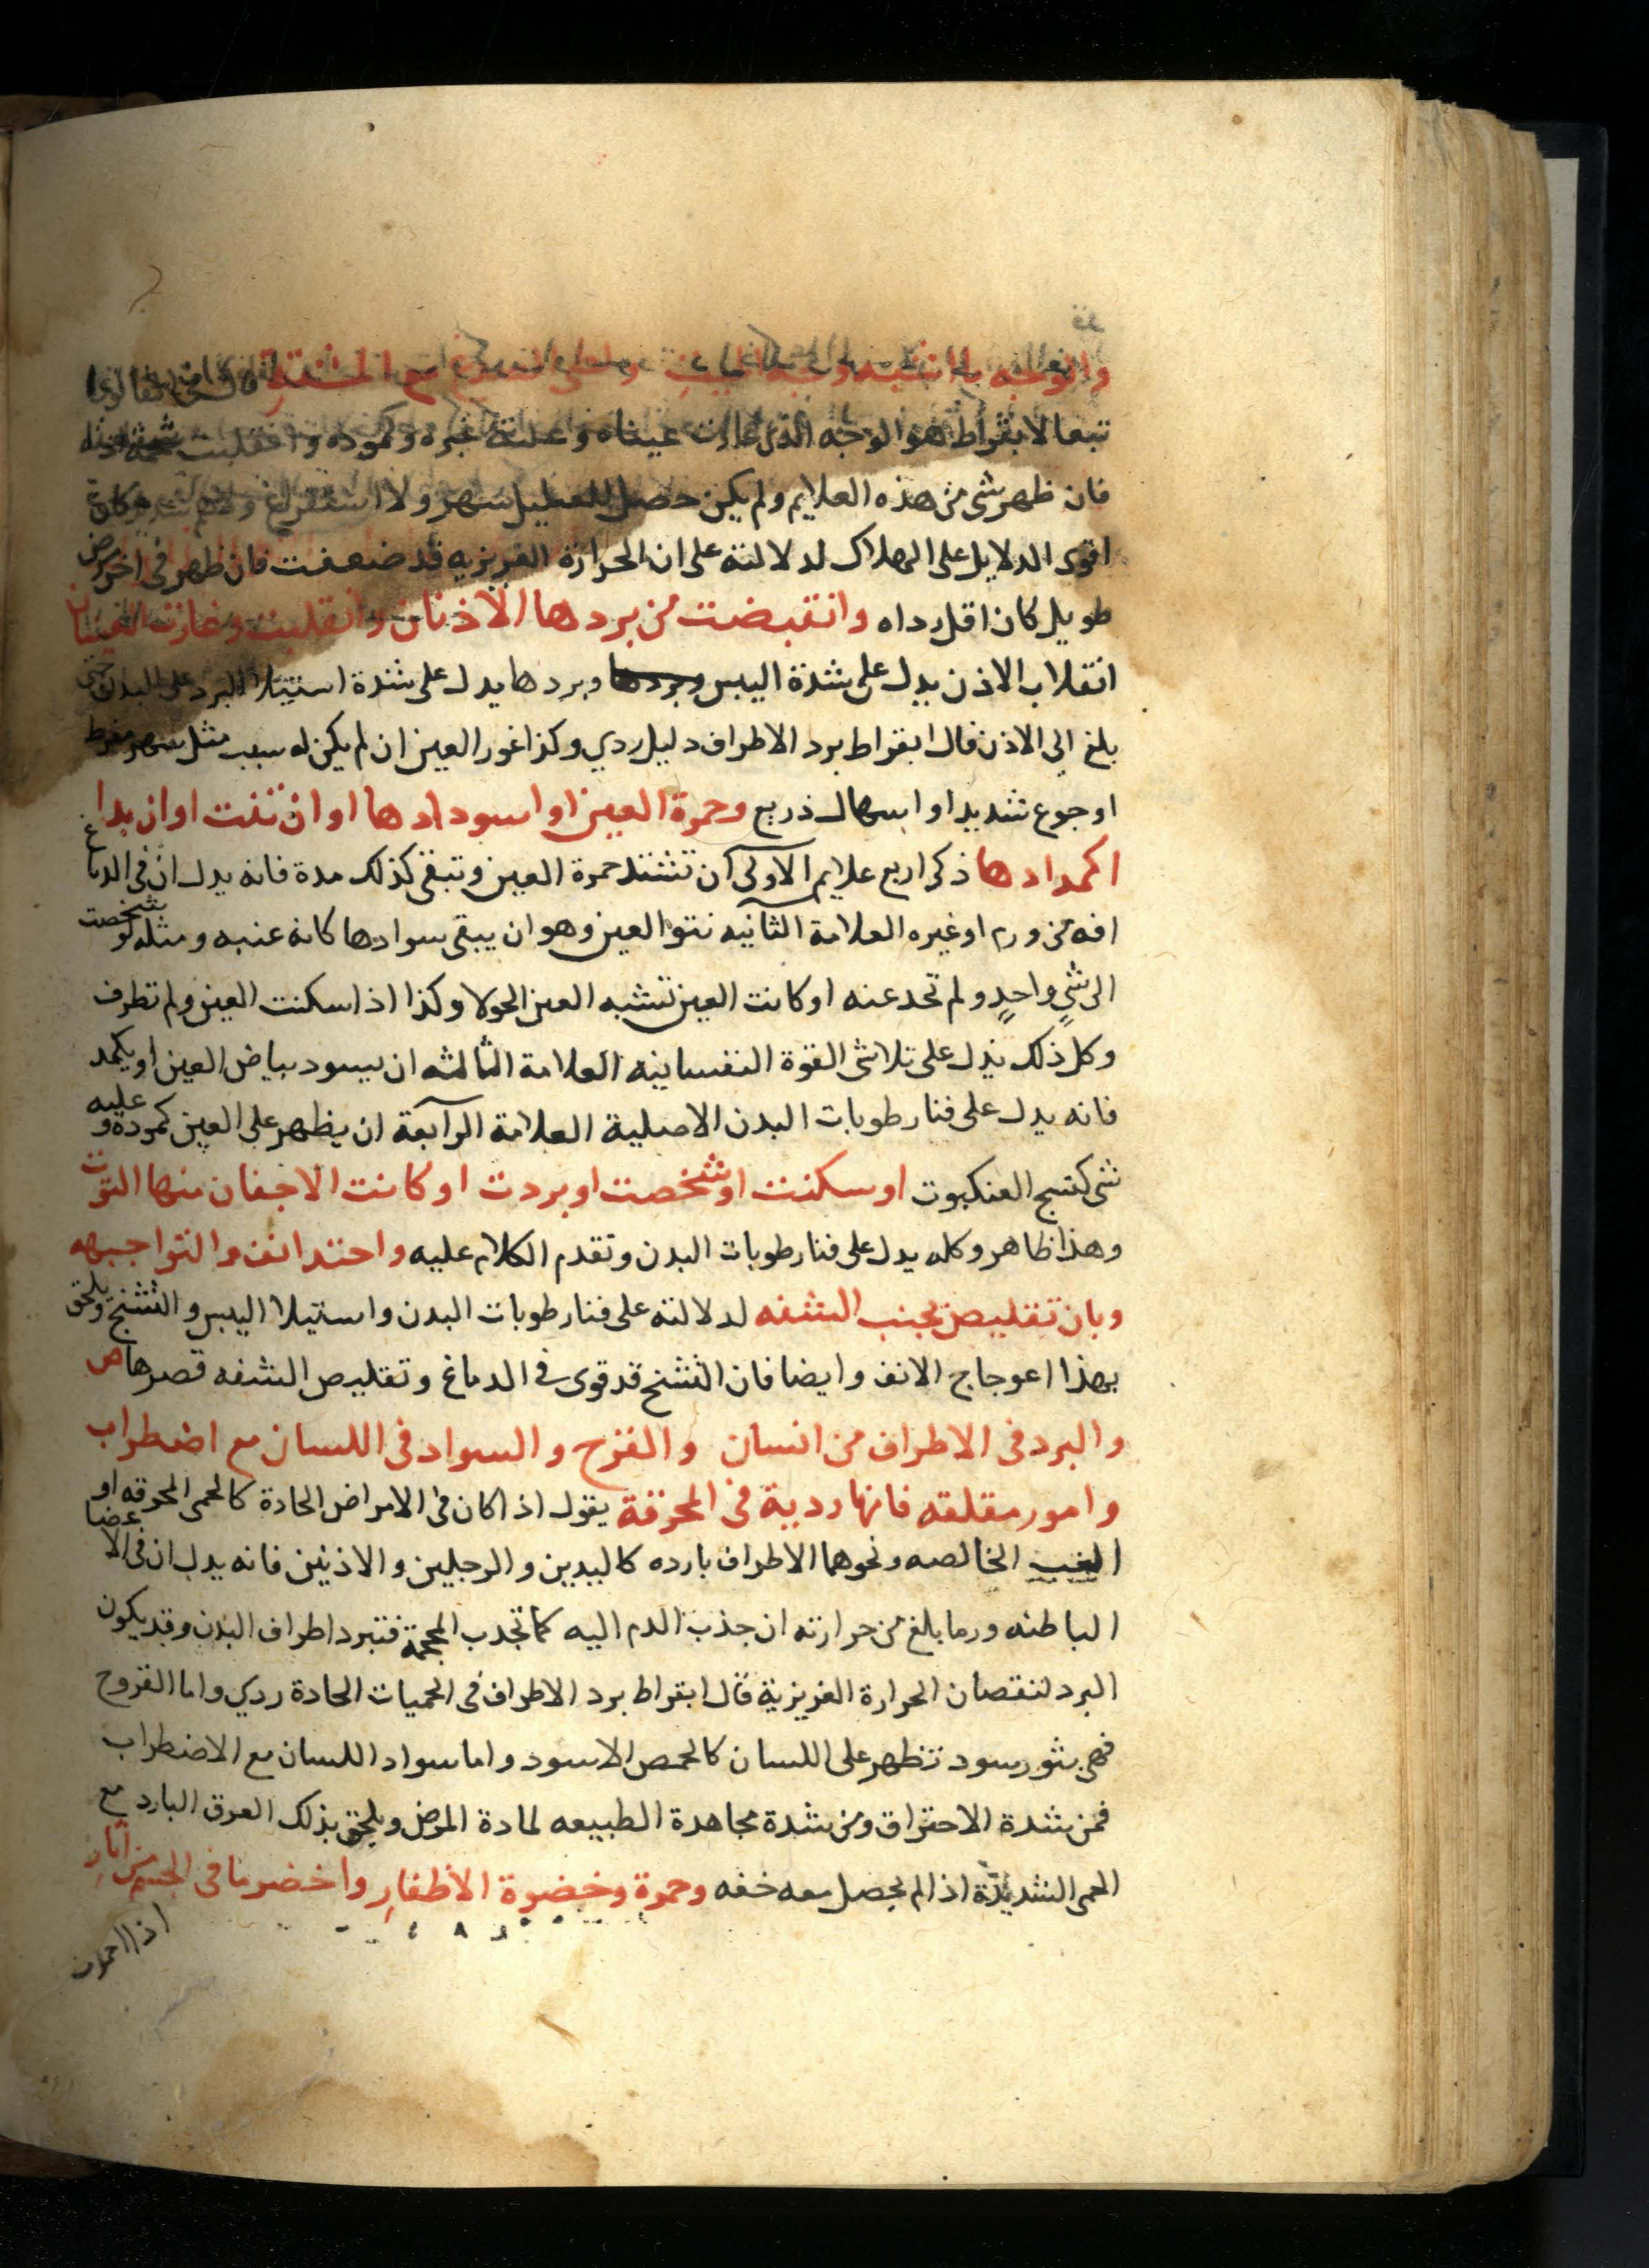 والوجه ان اشبه وجه الميت
تبعا لابقراط هو الوجه الذي غارت عيناه وعلته غبره وكموده وانقلبت شحمة اذنه
فان ظهر شي من هذه العلايم ولم يكن حصل للعليل سهر ولا استفراغ
اقوى الدلايل على الهلاك لدلالته على ان الحرارة الغريزيه قد ضعفت فان ظهر في اخر مرض
طويل كان اقل رداه وانقبضت من بردها الاذنان وانقلبت وغارت العينان
انقلاب الاذن يدل على شدة اليبس وبردها يدل على شدة استيلا البرد على البدن حتى
بلغ الى الاذن قال ابقراط برد الاطراف دليل ردي وكذا غور العين ان لم يكن له سبب مثل سهر مفرط
او جوع شديد او اسهال ذريع وحمرة العين او اسودادها او ان نتت او ان بدا
اكمدادها ذكر اربع علايم الاولى ان تشتد حمرة العين وتبقى كذلك مدة فانه يدل ان في الدماغ
افه من ورم او غيره العلامة الثانيه نتو العين وهو ان يبقى سوادها كانه عنبه ومثله لو شخصت
الى شي واحد ولم تحد عنه او كانت العين تشبه العين الحولا وكذا اذا سكنت العين ولم تطرف
وكل ذلك يدل على تلاشي القوة النفسانيه العلامة الثالثه ان يسود بياض العين او يكمد
فانه يدل على فنا رطوبات البدن الاصلية العلامة الرابعة ان يظهر على العين كمودة وعليه
شي كنسج العنكبوت او سكنت او شخصت او بردت او كانت الاجفان منها التوت
وهذا ظاهر وكله يدل على فنا رطوبات البدن وتقدم الكلام عليه واحتد انف والتوا جبهه
وبان تقليص بجنب الشفه لدلالته على فنا رطوبات البدن واستيلا اليبس والتشنج ويلحق
بهذا اعوجاج الانف وايضا فان التشنج قد قوي في الدماغ وتقليص الشفه قصرها ص
والبرد في الاطراف من انسان والقرح والسواد في اللسان مع اضطراب
وامور مقلقه فانها ردية في المحرقة يقول اذا كان في الامراض الحادة كالحمى المحرقه او
الغب الخالصه ونحوهما الاطراف بارده كاليدين والرجلين والاذنين فانه يدل ان في الاعضا
الباطنه ورما بلغ من حرارته ان جذب الدم اليه كما تجدب المحجمة فتبرد اطراف البدن وقد يكون
البرد لنقصان الحرارة الغريزية قال ابقراط برد الاطراف في الحميات الحادة ردي واما القروح
فهي بثور سود تظهر على اللسان كالحمص الاسود واما سواد اللسان مع الاضطراب
فمن شدة الاحتراق ومن شدة مجاهدة الطبيعه لمادة المرض ويلحق بذلك العرق البارد مع
الحمى الشديدة اذا لم يحصل معه خفه وحمرة وخضرة الاظفار واخضر ما في الجسم من اثار
اذا احمرت